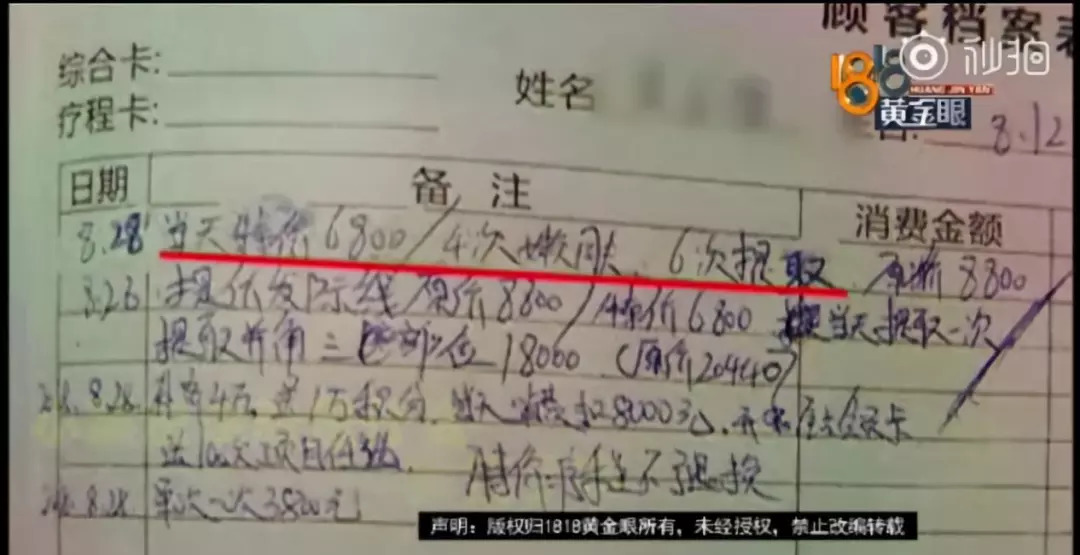 顾客档案表
秒拍
1818
HUANG JIN YAN
黄金眼
综合卡:
疗程卡:
姓名
8.12
日期 备注 消费金额
8.28 当天特价6800/4次嫩肤、6次提取 原价8800
8.28 提低发际线原价8800/特价6800 当天提取一次
提取 三 部位18000(原价20440)
8.28 4万,送1万积分,当天消费扣8000元,
送10次项目任
特价: 不退换
8.28 单次一次3800元
声明:版权归1818黄金眼所有,未经授权,禁止改编转载